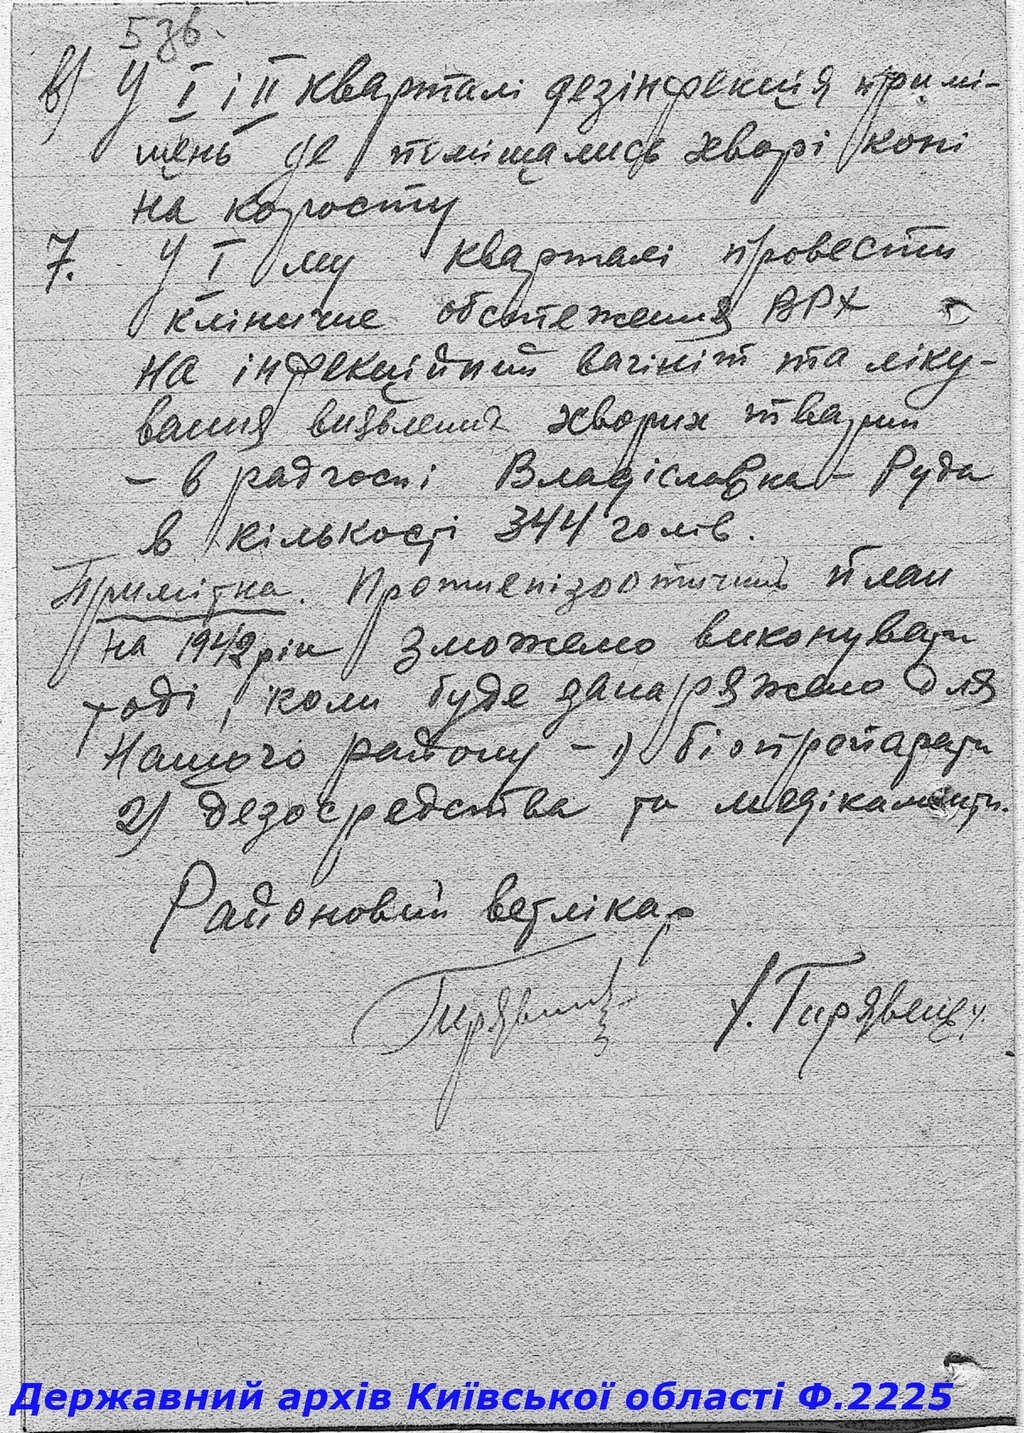 5 зв.
в) У І і ІІ кварталі дезінфекція примі-
щень де поміщались хворі коні
на коросту
7. У І му кварталі провести
клінічне обстеження ВРХ
на інфекційний вагініт та ліку-
вання виявлених хворих тварин
– в радгоспі Владіславка – Руда
в кількості 344 голів.
Примітка. Протиепізоотичний план
на 1942 рік зможемо виконувати
тоді, коли буде занаряжено для
нашого району – 1) біопрепарати
2) дезосредства та медікаменти.
Районовий ветлікар
Державний архів Київської області Ф.2225